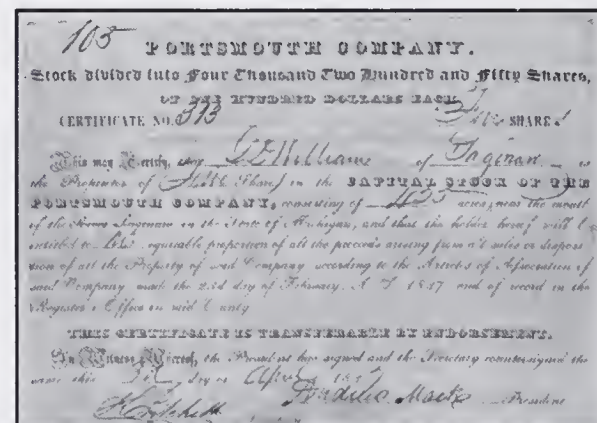 105
PORTSMOUTH COMPANY.
Stock divided into Four Thousand Two Hundred and Fifty Shares,
OF ONE HUNDRED DOLLARS EACH.
CERTIFICATE NO. 313 Five SHARES
This may Certify, that G D Williams of Saginaw is
the Proprietor of Five Shares in the CAPITAL STOCK OF THE
PORTSMOUTH COMPANY, consisting of 425 acres, near the mouth
of the River Saginaw in the State of Michigan, and that the holder hereof will be
entitled to equitable proportion of all the proceeds arising from all sales or dispos
tion of all the Property of said Company according to the Articles of Association of
said Company made the 23d day of February, A D 1837 and of record in the
Register's Office in said County
THIS CERTIFICATE IS TRANSFERABLE BY ENDORSEMENT.
In Witness Whereof, the President has signed and the Secretary countersigned the
same this day of April
President